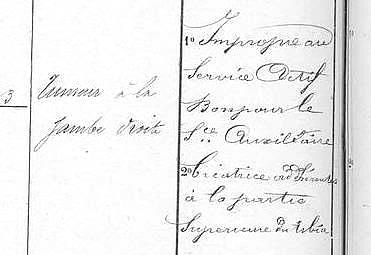 3
Tumeur à la
Jambe droite
1o Impropre au
Service Actif
Bon pour le
Sce Auxiliaire
2o Cicatrice adhérente
à la partie
Superieure du tibia